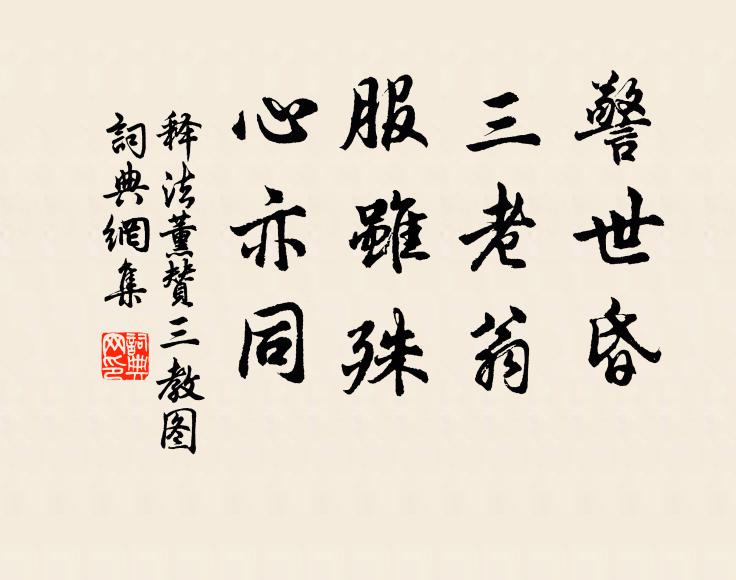 警世昏
三老翁
服雖殊
心亦同
释法薰赞三教图
詞典網集
詞典
网印